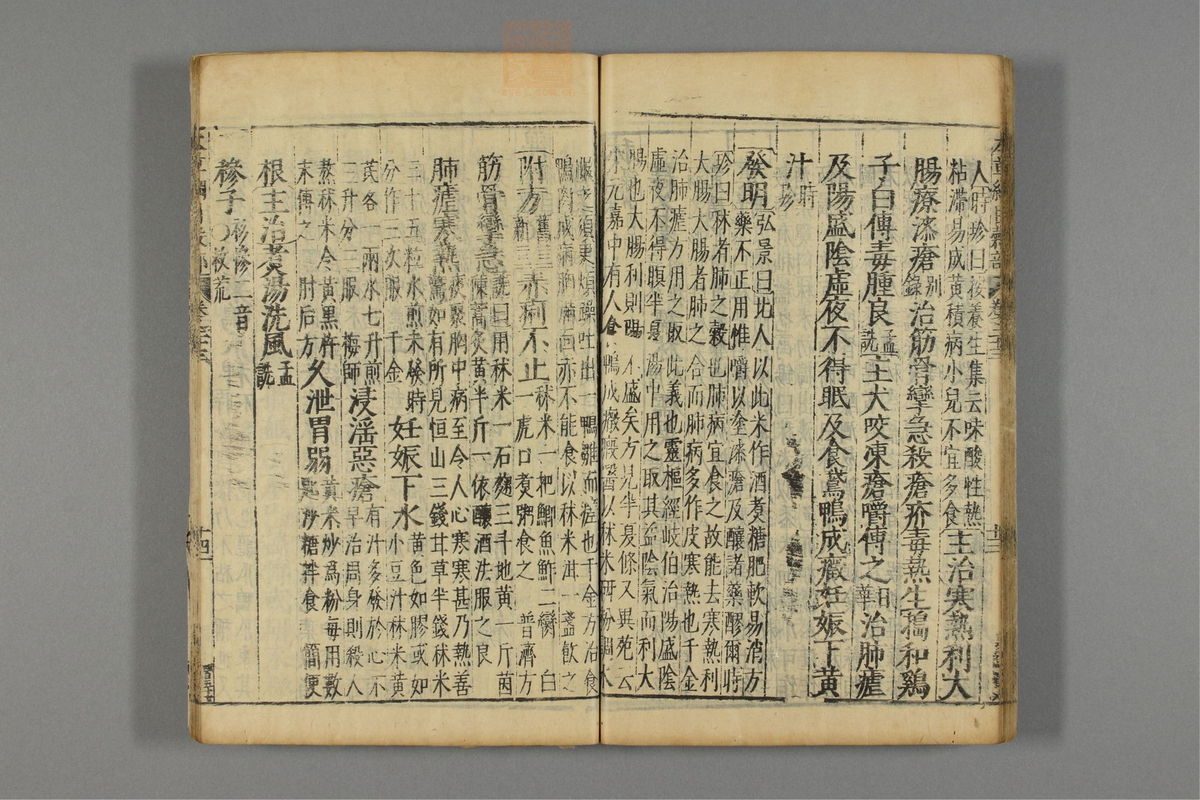 人時珍曰按養生集云味酸性熱
粘滯易成黃積病小兒不宜多食主治寒熱利大
腸療漆瘡别錄治筋骨攣急殺瘡疥毒熱生擣和鷄
子白傅毒腫良孟詵主犬咬凍瘡嚼傅之日華治肺瘧
及陽盛陰虛夜不得眠及食鵞鴨成癥妊娠下黃
汁時珍
發明弘景曰北人以此米作酒煑糖肥軟易消方
藥不正用惟嚼以塗漆瘡及釀諸藥醪爾時
珍曰秫者肺之穀也肺病宜食之故能去寒熱利
大腸大腸者肺之合而肺病多作皮寒熱也千金
治肺瘧方用之取此義也靈樞經岐伯治陽盛陰
虛夜不得瞑半夏湯中用之取其益陰氣而利大
腸也大腸利則陽不盛矣方見半夏條又異苑云
宋元嘉中有人食鴨成癥瘕醫以秫米研粉調水
服之須臾煩躁吐出一鴨雛而瘥也千金方治食
鴨肉成病胸滿面赤不能食以秫米泔一盞飲之
附方舊三新三赤痢不止秫米一把鯽魚鮓二臠白
一虎口煑粥食之 普濟方
筋骨攣急詵曰用秫米一石麴三斗地黃一斤茵
蔯蒿炙黃半斤一依釀酒法服之良
肺瘧寒熱痰聚胸中病至令人心寒寒甚乃熱善
驚如有所見恒山三錢甘草半錢秫米
三十五粒水煎未發時
分作三次服 千金妊娠下水黃色如膠或如
小豆汁秫米黃
芪各一兩水七升煎
三升分三服 梅師浸淫惡瘡有汁多發於心不
早治周身則殺人
熬秫米令黃黑杵
末傅之 肘后方久泄胃弱黃米炒爲粉每用數
匙沙糖拌食 簡便
根主治煑湯洗風孟詵
穇子衫慘二音〇救荒